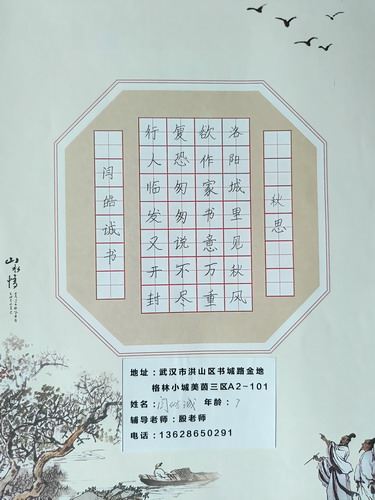 秋思
洛阳城里见秋风
欲作家书意万重
复恐匆匆说不尽
行人临发又开封
闫皓诚书
山水情
地址：武汉市洪山区书城路金地
格林小城美茵三区A2-101
姓名：闫皓诚 年龄：7
辅导老师：殷老师
电话：13628650291